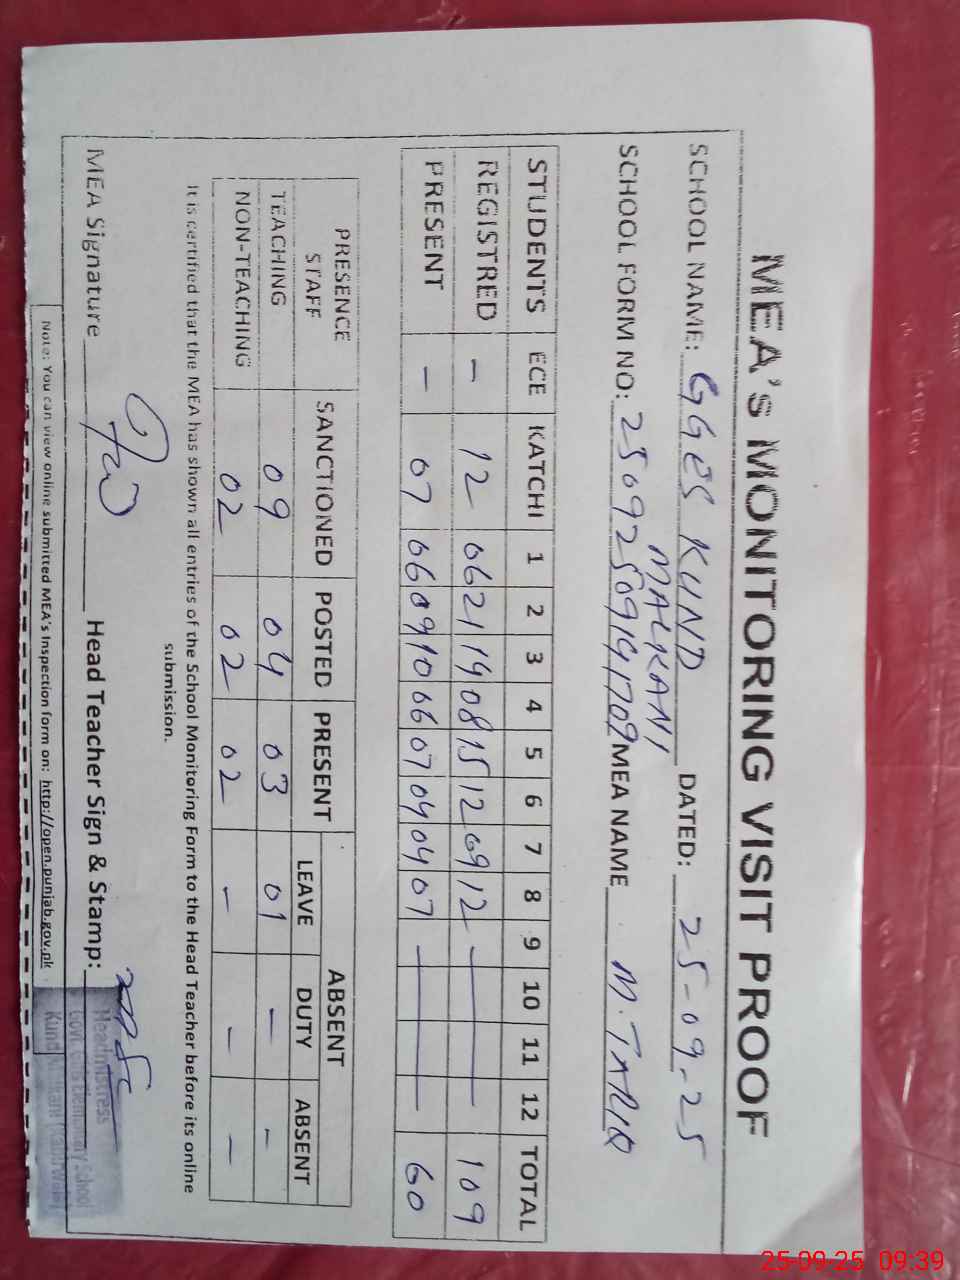 MEA's MONITORING VISIT PROOF
SCHOOL NAME: GGES KUND MALKANI DATED: 25-09-25
SCHOOL FORM NO: 25092509194709 MEA NAME M. TARIQ
STUDENTS ECE KATCHI 1 2 3 4 5 6 7 8 9 10 11 12 TOTAL
REGISTRED - 12 06 21 14 08 15 12 09 12 — 109
PRESENT - 07 06 09 10 06 07 04 04 07 — 60
PRESENCE STAFF SANCTIONED POSTED PRESENT ABSENT
LEAVE DUTY ABSENT
TEACHING 09 04 03 01 - -
NON-TEACHING 02 02 02 - - -
It is certified that the MEA has shown all entries of the School Monitoring Form to the Head Teacher before its online
submission.
MEA Signature Head Teacher Sign & Stamp:
Headmistress
Govt. Girls Elementary School
Kund Malkani
Note: You can view online submitted MEA's Inspection form on: http://open.punjab.gov.pk
25-09-25 09:39